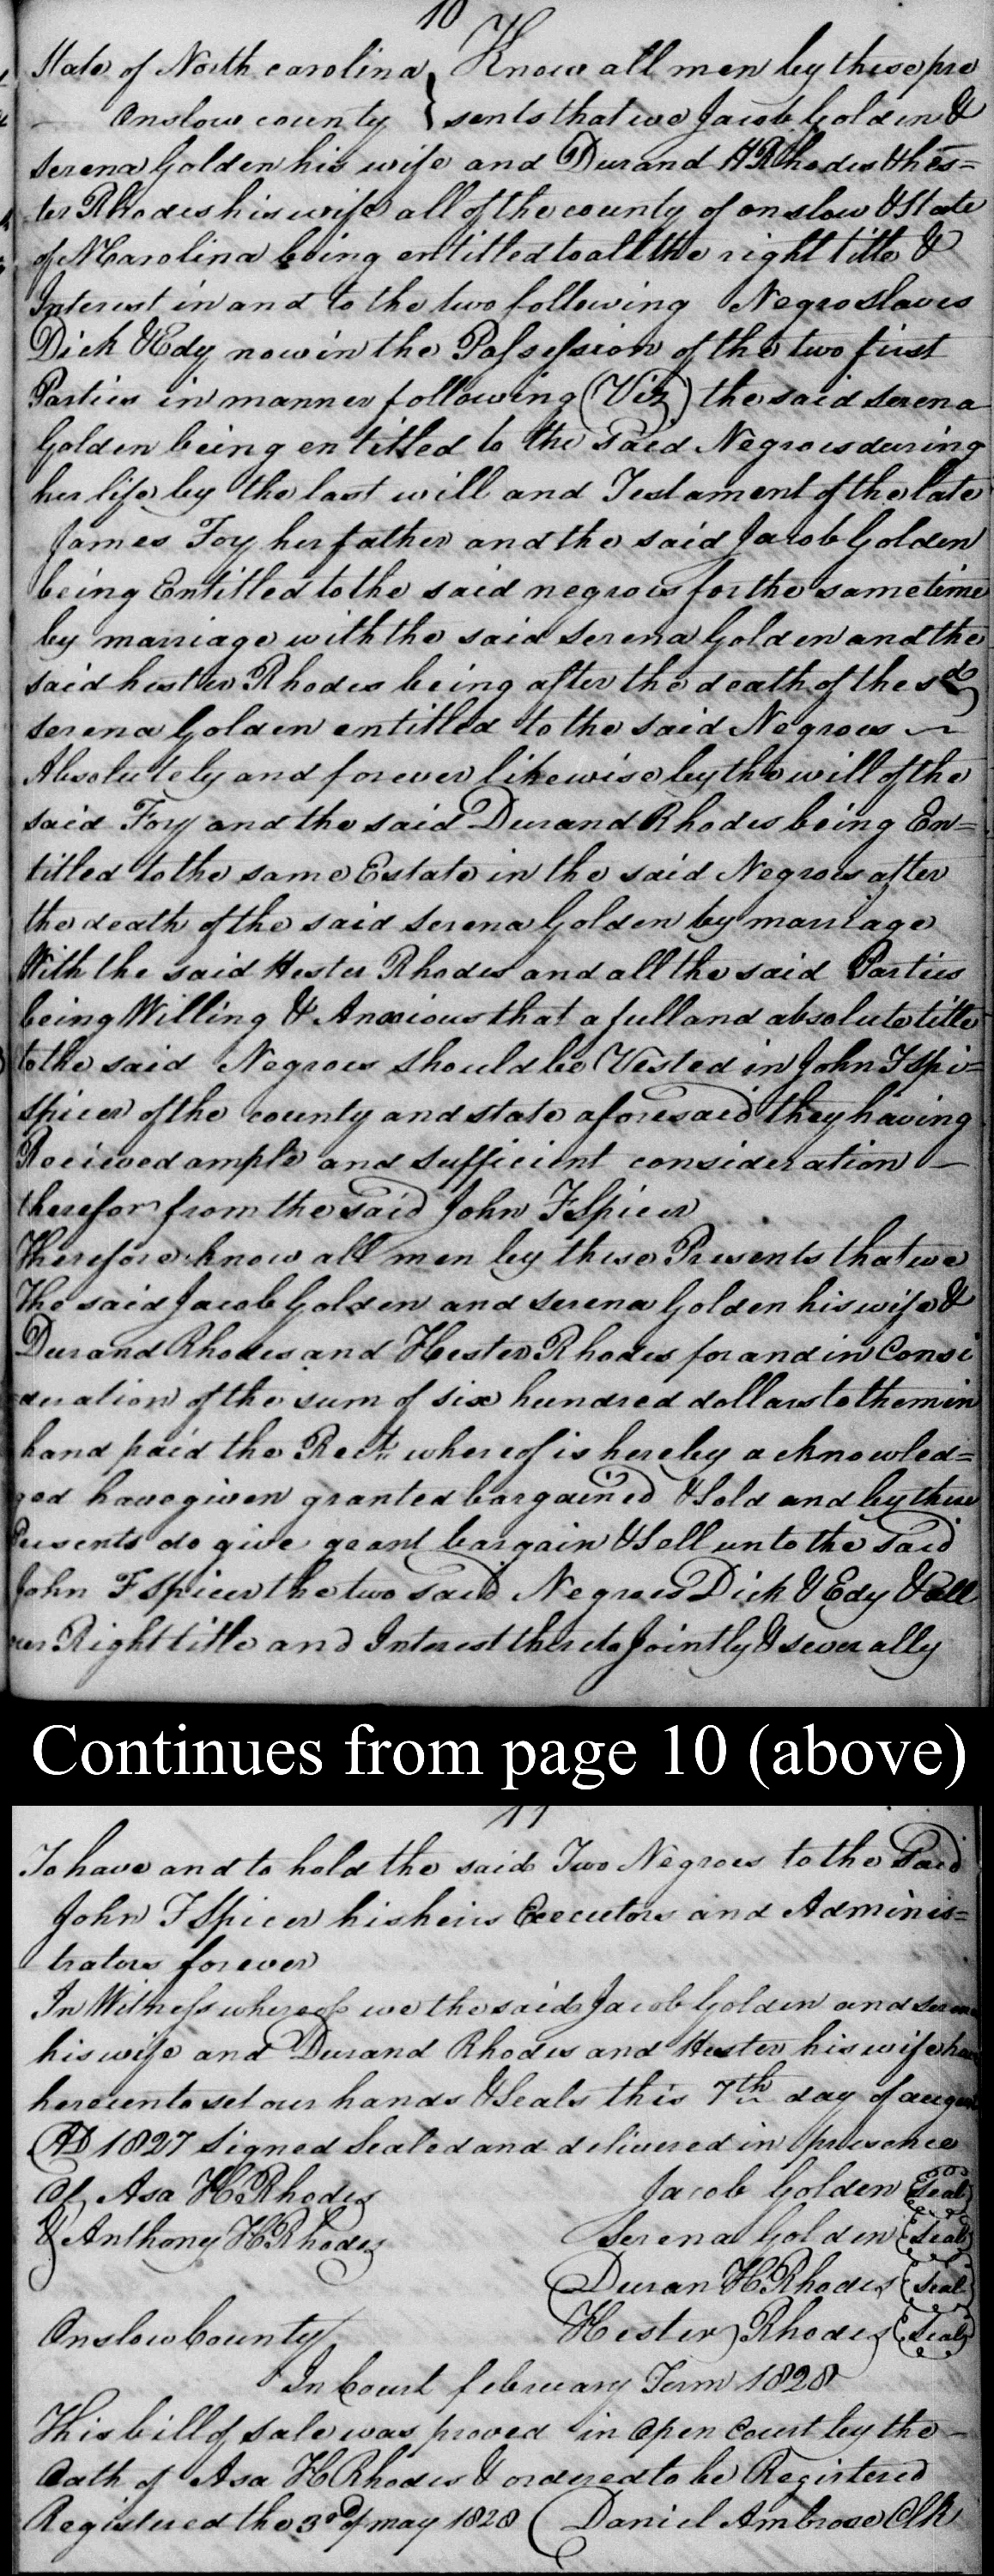 10
State of North carolina } Know all men by these pre
Onslow county } sents that we Jacob Golden &
serena Golden his wife and Durand H Rhodes & hes=
ter Rhodes his wife all of the county of onslow & State
of N Carolina being entitled to all the right title &
Interest in and to the two following Negro slaves
Dick & Edy now in the Possession of the two first
Parties in manner following (Viz) the said serena
Golden being entitled to the said Negroes during
her life by the last will and Testament of the late
James Foy her father and the said Jacob Golden
being Entitled to the said negroes for the same time
by marriage with the said serena Golden and the
said hester Rhodes being after the death of the sd
serena Golden entitled to the said Negroes
Absolutely and forever likewise by the will of the
said Foy and the said Durand Rhodes being En=
titled to the same Estate in the said Negroes after
the death of the said serena Golden by marriage
With the said Hester Rhodes and all the said Parties
being Willing & Anxious that a full and absolute title
to the said Negroes should be Vested in John F Spi=
spicer of the county and state aforesaid they having
Recieved ample and sufficient consideration —
therefor from the said John F Spicer
Therefore know all men by these Presents that we
The said Jacob Golden and serena Golden his wife &
Durand Rhodes and Hester Rhodes for and in Consi
deration of the sum of six hundred dollars to them in
hand paid the Rect. whereof is hereby acknowled=
ged have given granted bargained & Sold and by these
Presents do give grant bargain & Sell unto the said
John F Spicer the two said Negroes Dick & Edy & all
our Right title and Interest thereto Jointly & severally
Continues from page 10 (above)
11
To have and to hold the said Two Negroes to the Said
John F Spicer his heirs Executors and Adminis=
trators forever
In Witness whereof we the said Jacob Golden and serena
his wife and Durand Rhodes and Hester his wife have
hereunto set our hands & Seals this 7th day of august
AD 1827 Signed Sealed and delivered in presence
Of Asa H Rhodes Jacob Golden (Seal)
& Anthony H Rhodes Serena Golden (Seal)
Duran H Rhodes (Seal)
Onslow County Hester Rhodes (Seal)
In Court february Term 1828
This bill of sale was proved in open Court by the —
Oath of Asa H Rhodes & ordered to be Registered
Registered the 3rd of may 1828 Daniel Ambrose Clk